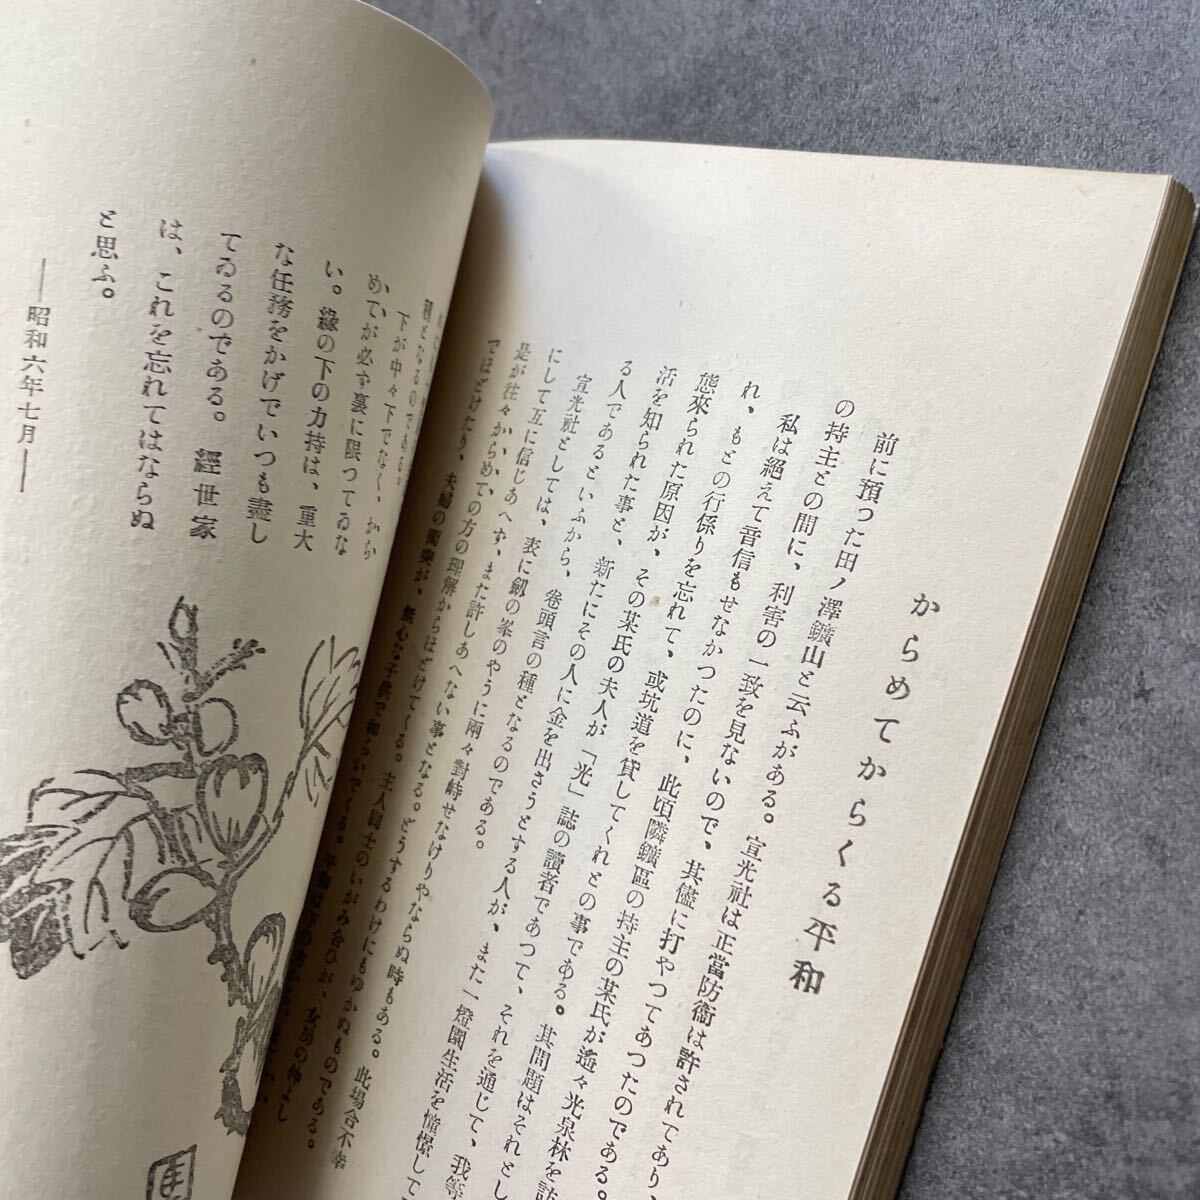 からめてからくる平和
前に預った田ノ澤鑛山と云ふがある。宣光社は正當防衞は許されてあり、
の持主との間に、利害の一致を見ないので、其儘に打やつてあつたのである。
私は絕えて音信もせなかつたのに、此頃隣鑛區の持主の某氏が遙々光泉林を訪
れ、もとの行係りを忘れて、或坑道を貸してくれとの事である。其問題はそれとし
態來られた原因が、その某氏の夫人が「光」誌の讀者であつて、それを通じて、我等
活を知られた事と、新たにその人に金を出さうとする人が、また一燈園生活を憧憬して
る人であるといふから、卷頭言の種となるのである。
宣光社としては、表に劔の峯のやうに兩々對峙せなけりやならぬ時もある。此場合不幸
にして互に信じあへず、また許しあへない事となる。どうするわけにもゆかぬものである。
是が往々からめての方の理解からほどけてくる。主人同士のいがみ合ひが、女房の仲よし
でほどけたり、夫婦の衝突が、無心な子供で和らいでくる。
種となるのである。
下が中々下でなく、から
めてが必ず裏に限つてゐな
い。緣の下の力持は、重大
な任務をかげでいつも盡し
てゐるのである。經世家
は、これを忘れてはならぬ
と思ふ。
――昭和六年七月――